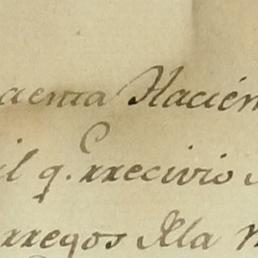 cienta Hacién
il q.e rrecivio
rregos Dla